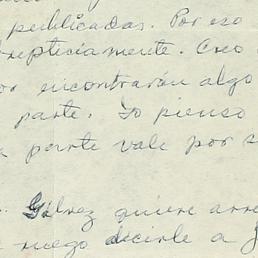 publicadas. Por eso
repticiamente. Creo
or encontrarán algo
parte. Yo pienso
a parte vale por s
. Gálvez quiere arre
ruego decirle a J